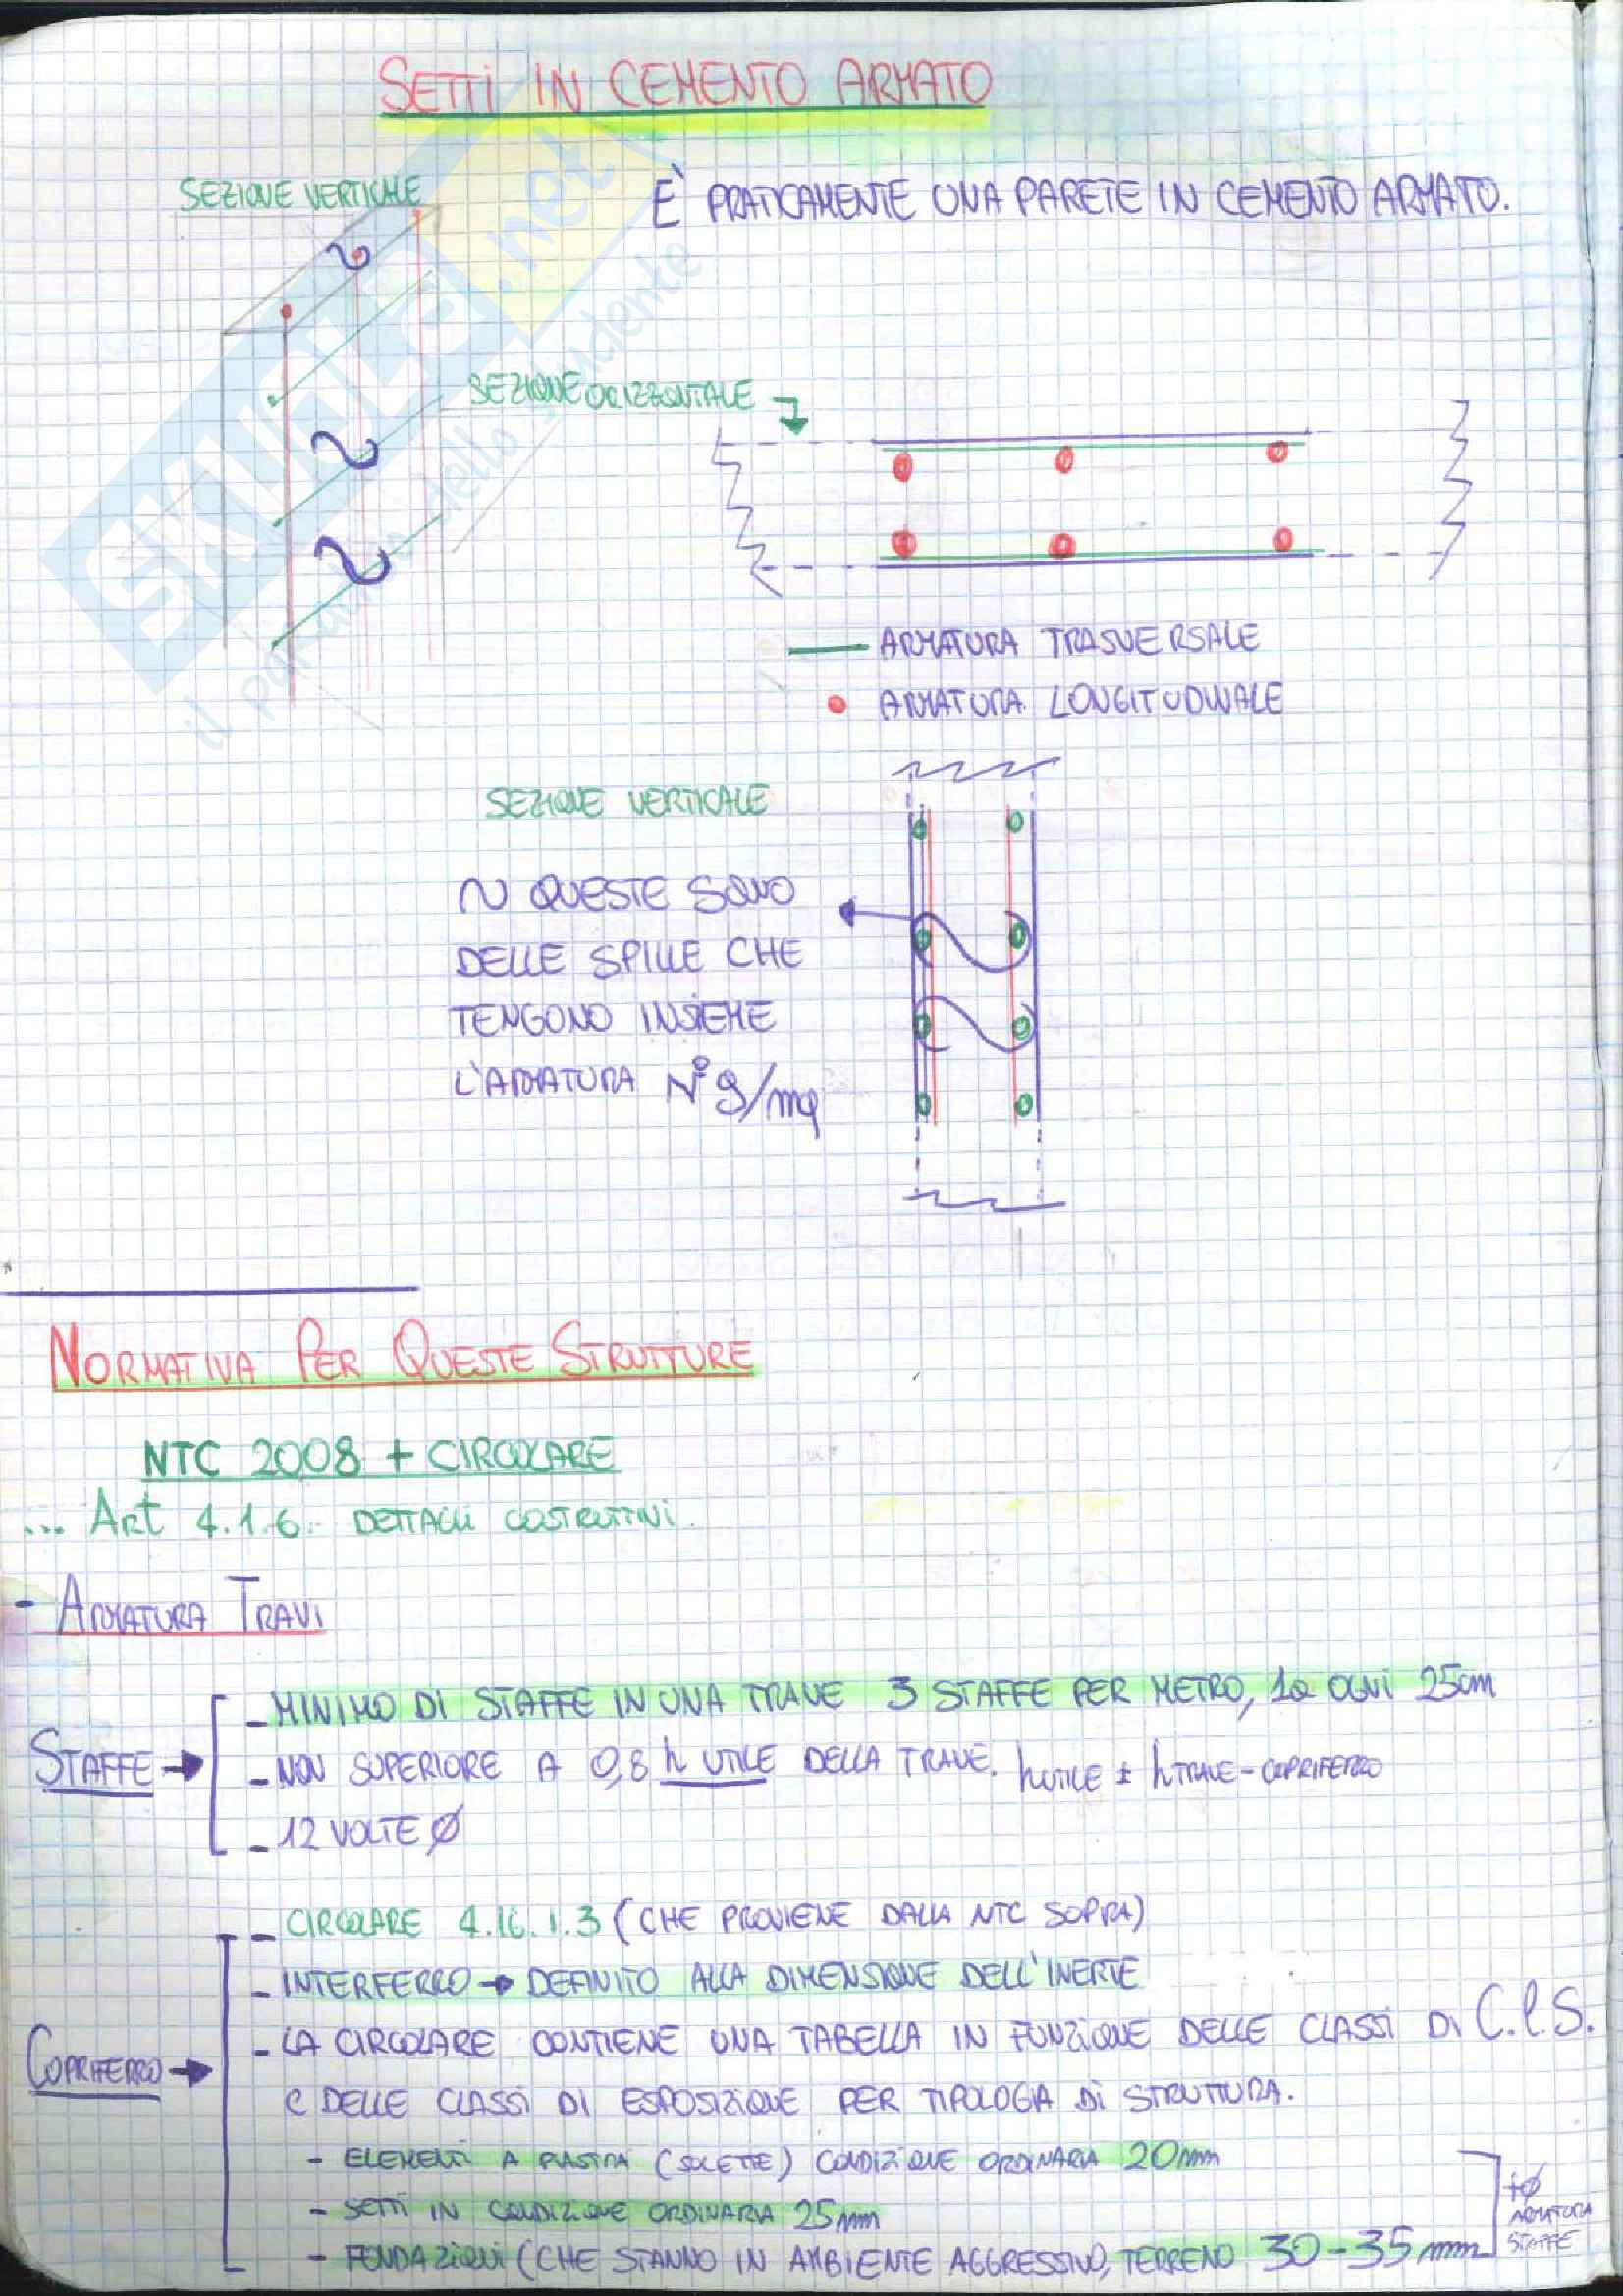 SETTI IN CEMENTO ARMATO
SEZIONE VERTICALE
È PRATICAMENTE UNA PARETE IN CEMENTO ARMATO.
SEZIONE ORIZZONTALE
ARMATURA TRASVERSALE
ARMATURA LONGITUDINALE
SEZIONE VERTICALE
QUESTE SONO
DELLE SPILLE CHE
TENGONO INSIEME
L'ARMATURA N° 9/mq
SKUOLA.net
il paradiso dello studente
NORMATIVA PER QUESTE STRUTTURE
NTC 2008 + CIRCOLARE
... Art 4.1.6. DETTAGLI COSTRUTTIVI.
- ARMATURA TRAVI
STAFFE →
- MINIMO DI STAFFE IN UNA TRAVE 3 STAFFE PER METRO, 1a OGNI 25cm
- NON SUPERIORE A 0,8 h UTILE DELLA TRAVE. h UTILE = h TRAVE - COPRIFERRO
- 12 VOLTE Ø
COPRIFERRO →
- CIRCOLARE 4.16.1.3 (CHE PROVIENE DALLA NTC SOPRA)
- INTERFERRO → DEFINITO ALLA DIMENSIONE DELL'INERTE
- LA CIRCOLARE CONTIENE UNA TABELLA IN FUNZIONE DELLE CLASSI DI C.l.S.
E DELLE CLASSI DI ESPOSIZIONE PER TIPOLOGIA DI STRUTTURA.
- ELEMENTI A PIASTRA (SOLETTE) CONDIZIONE ORDINARIA 20mm
- SETTI IN CONDIZIONE ORDINARIA 25mm
- FONDAZIONI (CHE STANNO IN AMBIENTE AGGRESSIVO, TERRENO 30-35mm
+Ø
ARMATURA
STAFFE